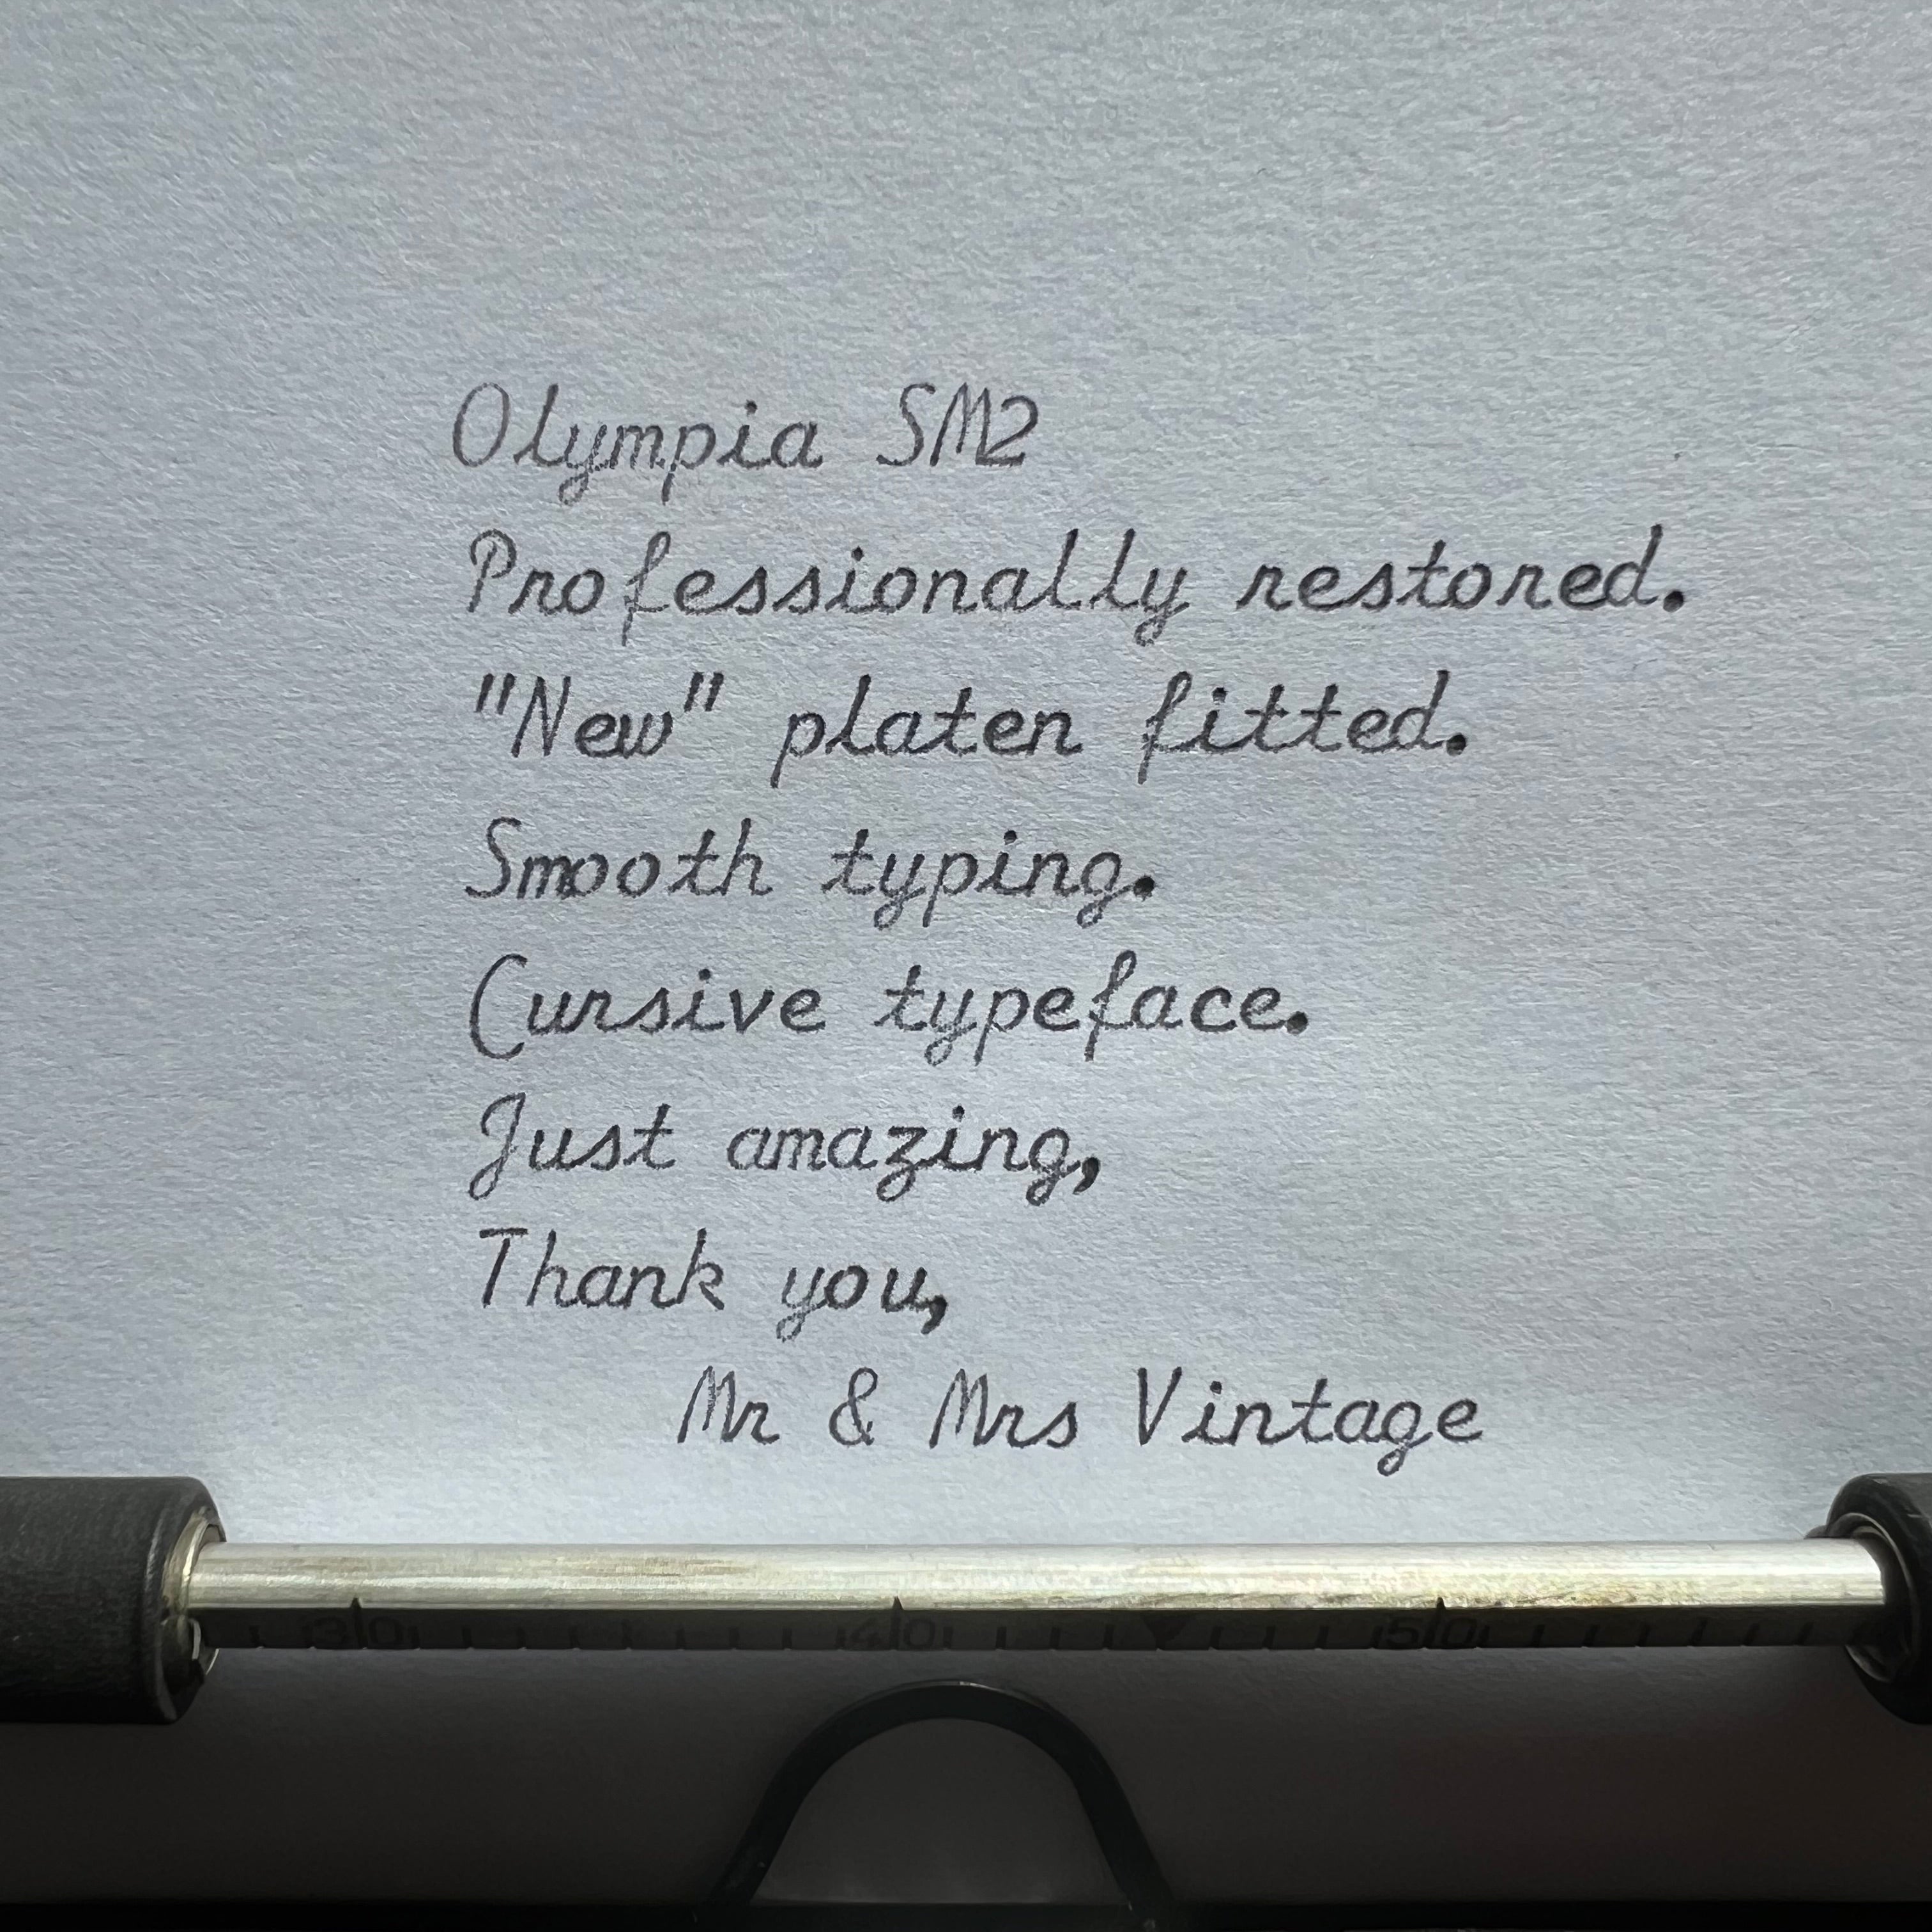 Olympia SM2
Professionally restored.
"New" platen fitted.
Smooth typing.
Cursive typeface.
Just amazing,
Thank you,
Mr & Mrs Vintage
30 40 50